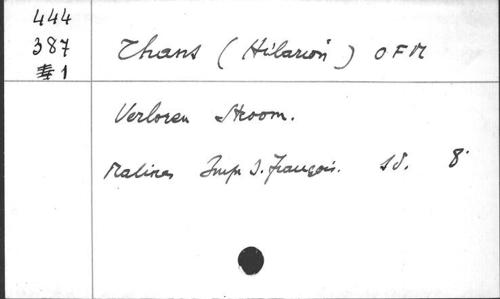 444
387
#1
Thans (Hilarion) OFM
Verloren Stroom.
Malines Imp S. François. sd. 8°